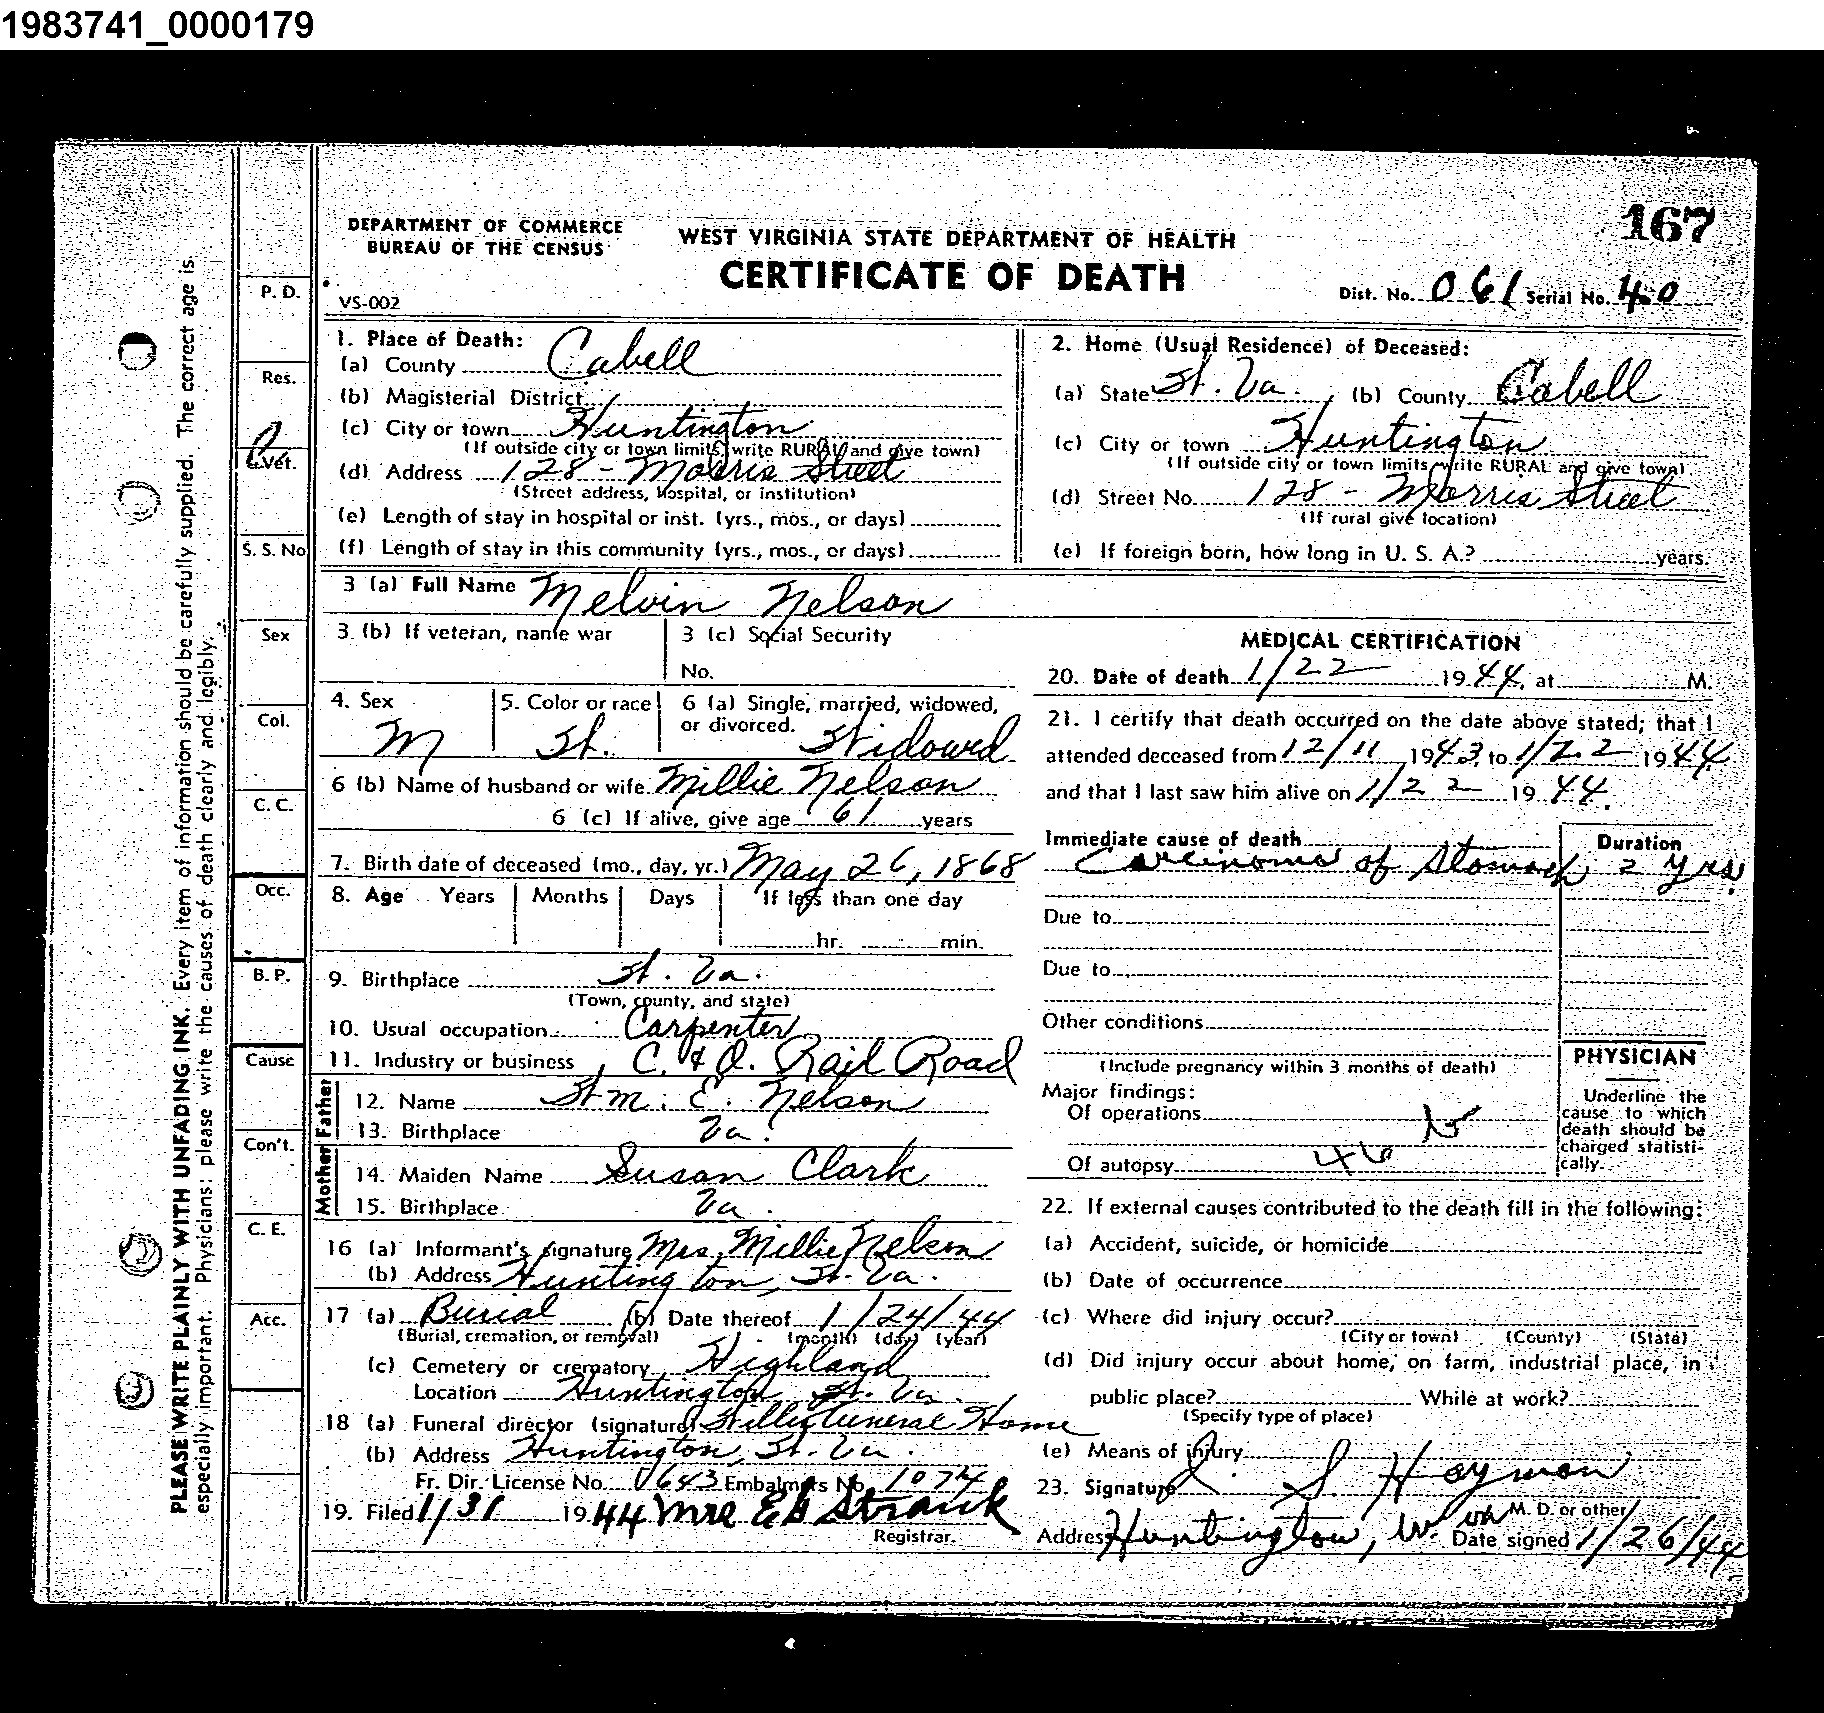 1983741_0000179
167
DEPARTMENT OF COMMERCE
BUREAU OF THE CENSUS
WEST VIRGINIA STATE DEPARTMENT OF HEALTH
CERTIFICATE OF DEATH
VS-002
Dist. No. 061 Serial No. 40
PLEASE WRITE PLAINLY WITH UNFADING INK. Every item of information should be carefully supplied. The correct age is
especially important. Physicians: please write the causes of death clearly and legibly.
P. D.
Res.
Vet.
S. S. No
Sex
Col.
C. C.
Occ.
B. P.
Cause
Con't.
C. E.
Acc.
1. Place of Death:
(a) County Cabell
(b) Magisterial District
(c) City or town Huntington
(If outside city or town limits, write RURAL and give town)
(d) Address 128 - Morris Street
(Street address, hospital, or institution)
(e) Length of stay in hospital or inst. (yrs., mos., or days)
(f) Length of stay in this community (yrs., mos., or days)
2. Home (Usual Residence) of Deceased:
(a) State W. Va. (b) County Cabell
(c) City or town Huntington
(If outside city or town limits, write RURAL and give town)
(d) Street No. 128 - Morris Street
(If rural give location)
(e) If foreign born, how long in U. S. A.? years.
3 (a) Full Name Melvin Nelson
3. (b) If veteran, name war
3 (c) Social Security
No.
4. Sex M
5. Color or race W.
6 (a) Single, married, widowed,
or divorced. Widowed
6 (b) Name of husband or wife Millie Nelson
6 (c) If alive, give age 61 years
7. Birth date of deceased (mo., day, yr.) May 26, 1868
8. Age Years Months Days If less than one day
hr. min.
9. Birthplace W. Va.
(Town, county, and state)
10. Usual occupation Carpenter
11. Industry or business C. & O. Rail Road
Father
12. Name Wm. E. Nelson
13. Birthplace Va.
Mother
14. Maiden Name Susan Clark
15. Birthplace Va.
16 (a) Informant's signature Mrs. Millie Nelson
(b) Address Huntington, W. Va.
17 (a) Burial (b) Date thereof 1/24/44
(Burial, cremation, or removal) (month) (day) (year)
(c) Cemetery or crematory Highland
Location Huntington W. Va.
18 (a) Funeral director (signature) Funeral Home
(b) Address Huntington, W. Va.
Fr. Dir. License No. 0643 Embalmers No. 1074
19. Filed 1/31 1944 Mrs E B Strauk
Registrar.
MEDICAL CERTIFICATION
20. Date of death 1/22 1944, at M.
21. I certify that death occurred on the date above stated; that I
attended deceased from 12/11 1943, to 1/22 1944
and that I last saw him alive on 1/22 1944.
Immediate cause of death Duration
Carcinoma of Stomach 2 yrs.
Due to
Due to
Other conditions
(Include pregnancy within 3 months of death)
Major findings:
Of operations
Of autopsy 46
PHYSICIAN
Underline the
cause to which
death should be
charged statisti-
cally.
22. If external causes contributed to the death fill in the following:
(a) Accident, suicide, or homicide
(b) Date of occurrence
(c) Where did injury occur?
(City or town) (County) (State)
(d) Did injury occur about home, on farm, industrial place, in
public place? While at work?
(Specify type of place)
(e) Means of injury
23. Signature S. Hayman
M. D. or other
Address Huntington, W. Va Date signed 1/26/44